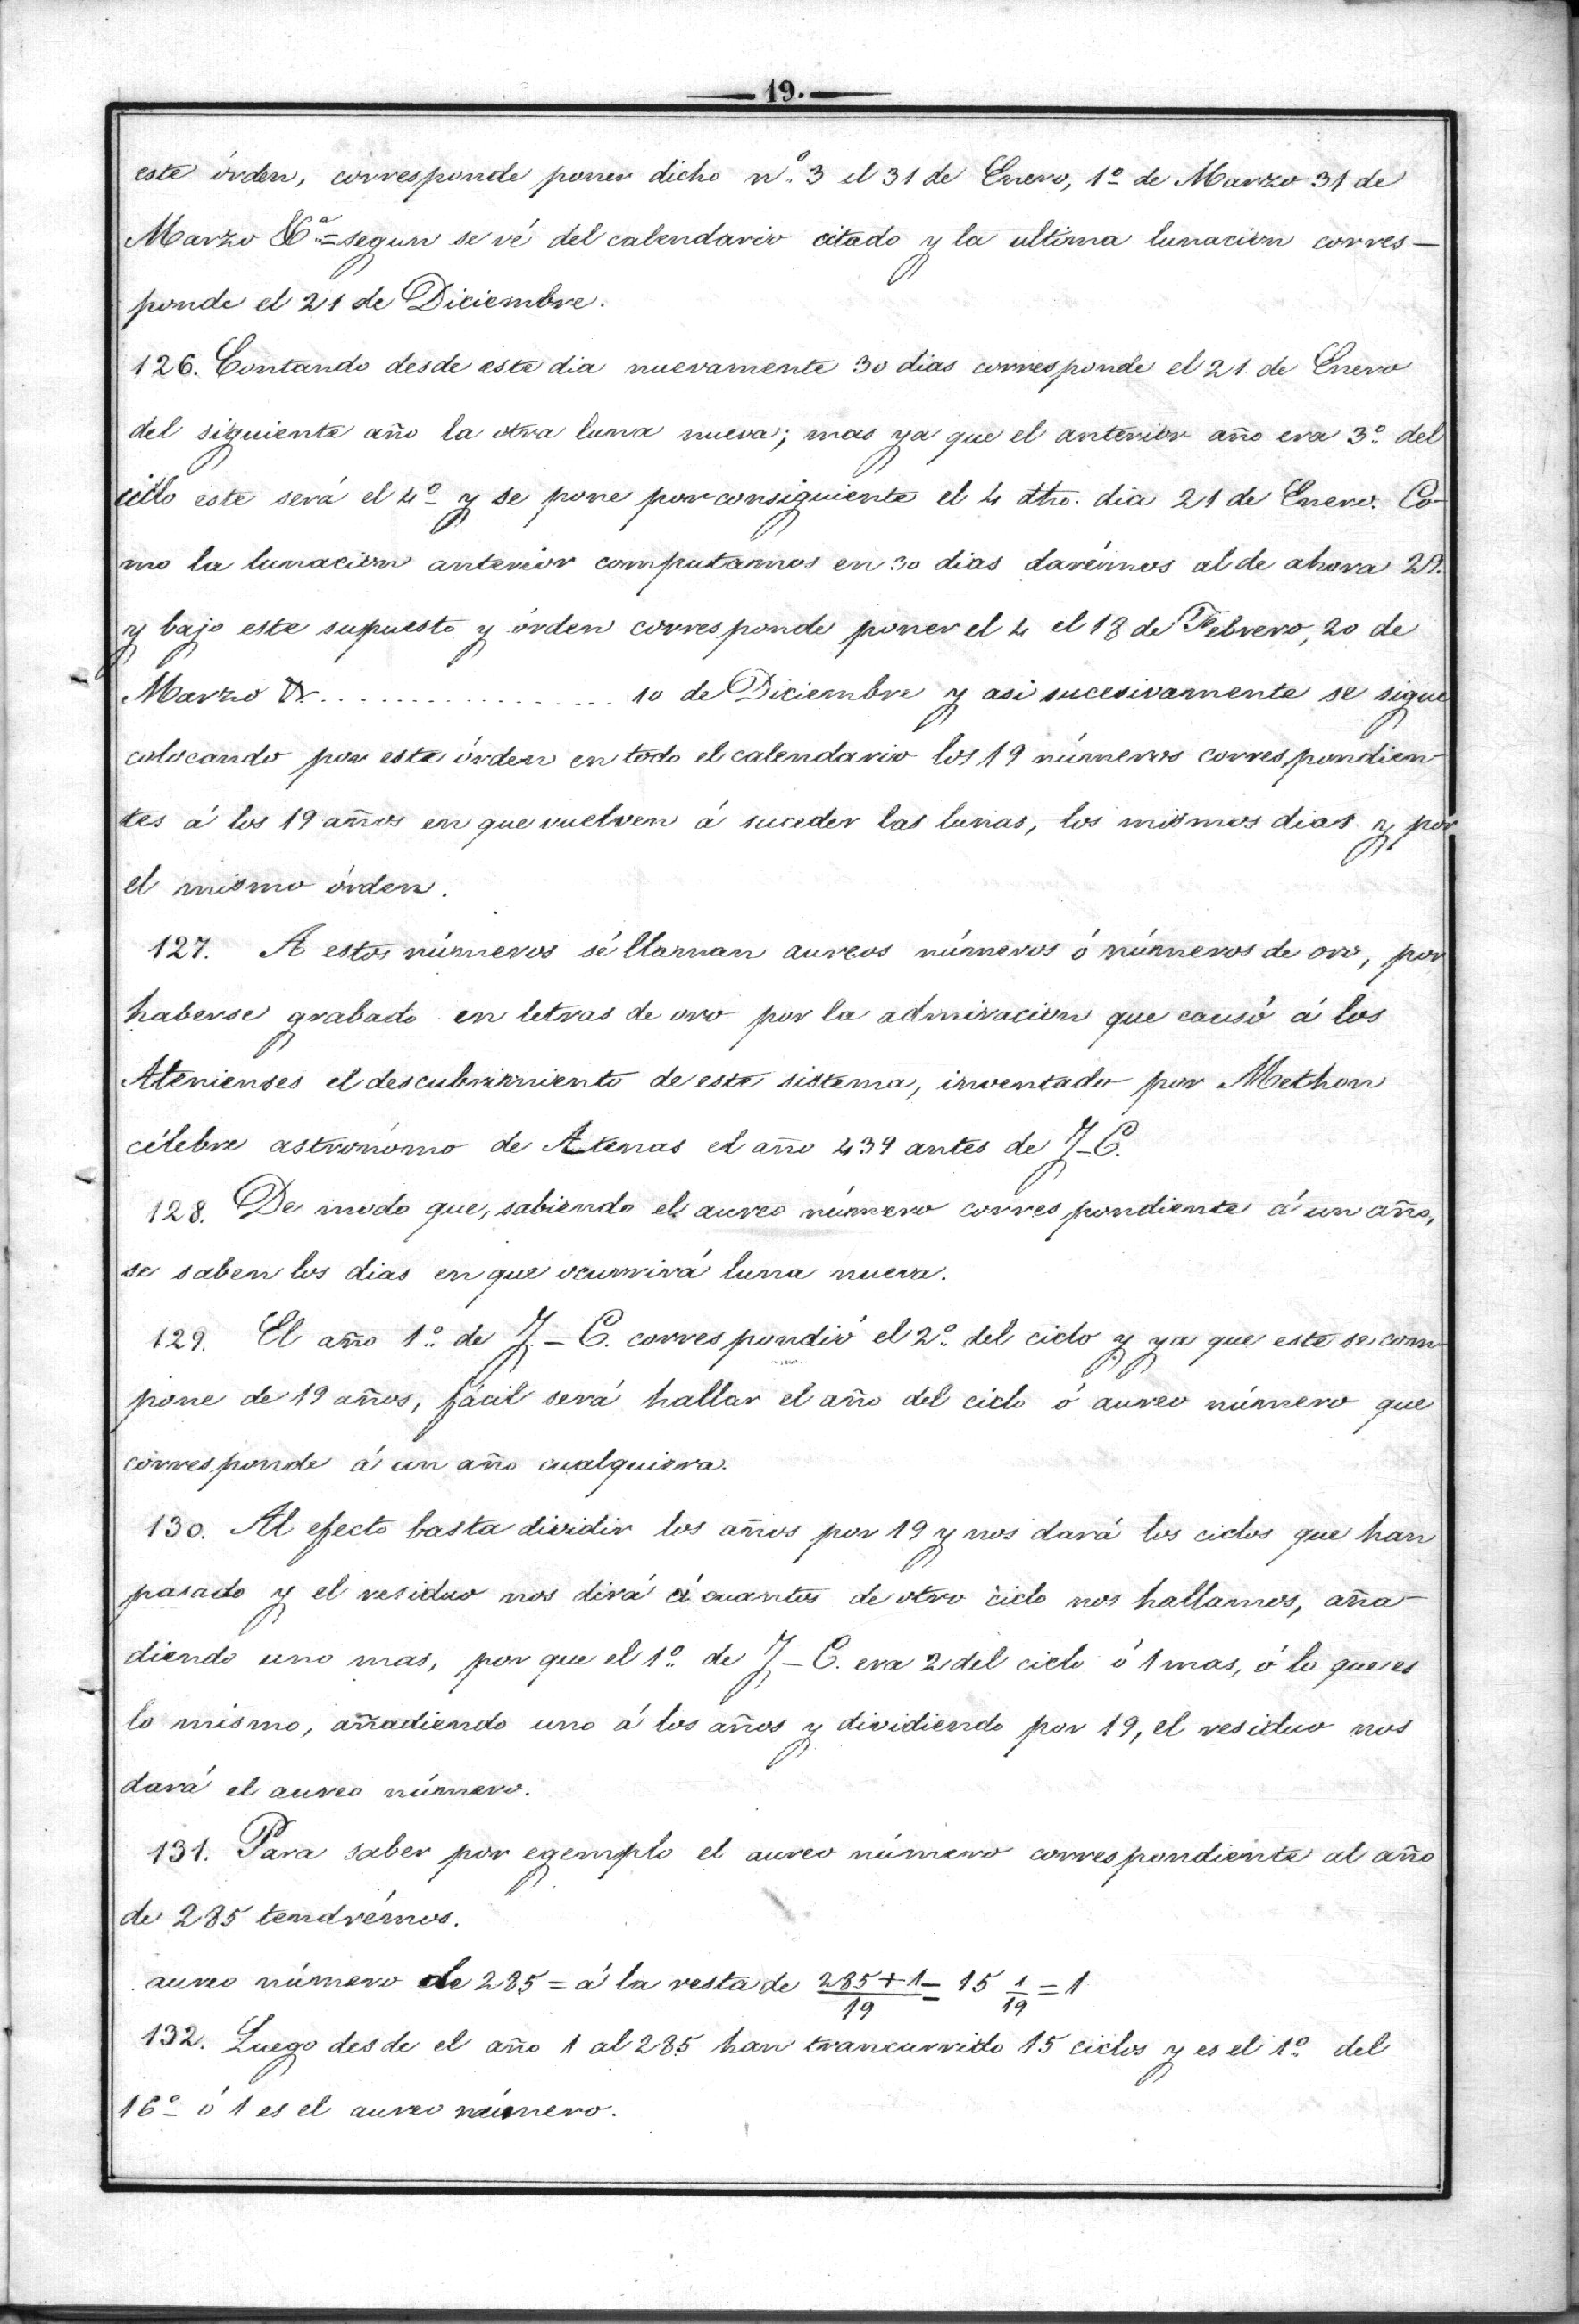 19.
este órden, corresponde poner dicho n.º 3 el 31 de Enero, 1º de Marzo 31 de
Marzo &ª = segun se vé del calendario citado y la ultima lunacion corres-
ponde el 21 de Diciembre.
126. Contando desde este dia nuevamente 30 dias corresponde el 21 de Enero
del siguiente año la otra luna nueva; mas ya que el anterior año era 3º del
ciclo este será el 4º y se pone por consiguiente el 4 dho. dia 21 de Enero. Co-
mo la lunacion anterior computamos en 30 dias darémos al de ahora 29.
y bajo este supuesto y órden corresponde poner el 4 el 18 de Febrero, 20 de
Marzo &. .................. 10 de Diciembre y asi sucesivamente se sigue
colocando por este órden en todo el calendario los 19 números correspondien-
tes á los 19 años en que vuelven á suceder las lunas, los mismos dias y por
el mismo órden.
127. A estos números sé llaman aureos números ó números de oro, por
haberse grabado en letras de oro por la admiracion que causó á los
Atenienses el descubrimiento de este sistema, inventado por Methon
célebre astronómo de Atenas el año 439 antes de J-C.
128. De modo que, sabiendo el aureo número correspondiente á un año,
se saben los dias en que ocurrirá luna nueva.
129. El año 1º de J.-C. correspondió el 2º del ciclo y ya que este se com-
pone de 19 años, fácil será hallar el año del ciclo ó aureo número que
corresponde á un año cualquiera.
130. Al efecto basta dividir los años por 19 y nos dará los ciclos que han
pasado y el residuo nos dirá á cuantos de otro ciclo nos hallamos, aña-
diendo uno mas, por que el 1º de J-C. era 2 del ciclo ó 1 mas, ó lo que es
lo mismo, añadiendo uno á los años y dividiendo por 19, el residuo nos
dará el aureo número.
131. Para saber por egemplo el aureo número correspondiente al año
de 285 tendrémos.
aureo número de 285 = á la resta de 285+1/19 = 15 1/19 = 1
132. Luego desde el año 1 al 285 han trancurrido 15 ciclos y es el 1º del
16º ó 1 es el aureo número.